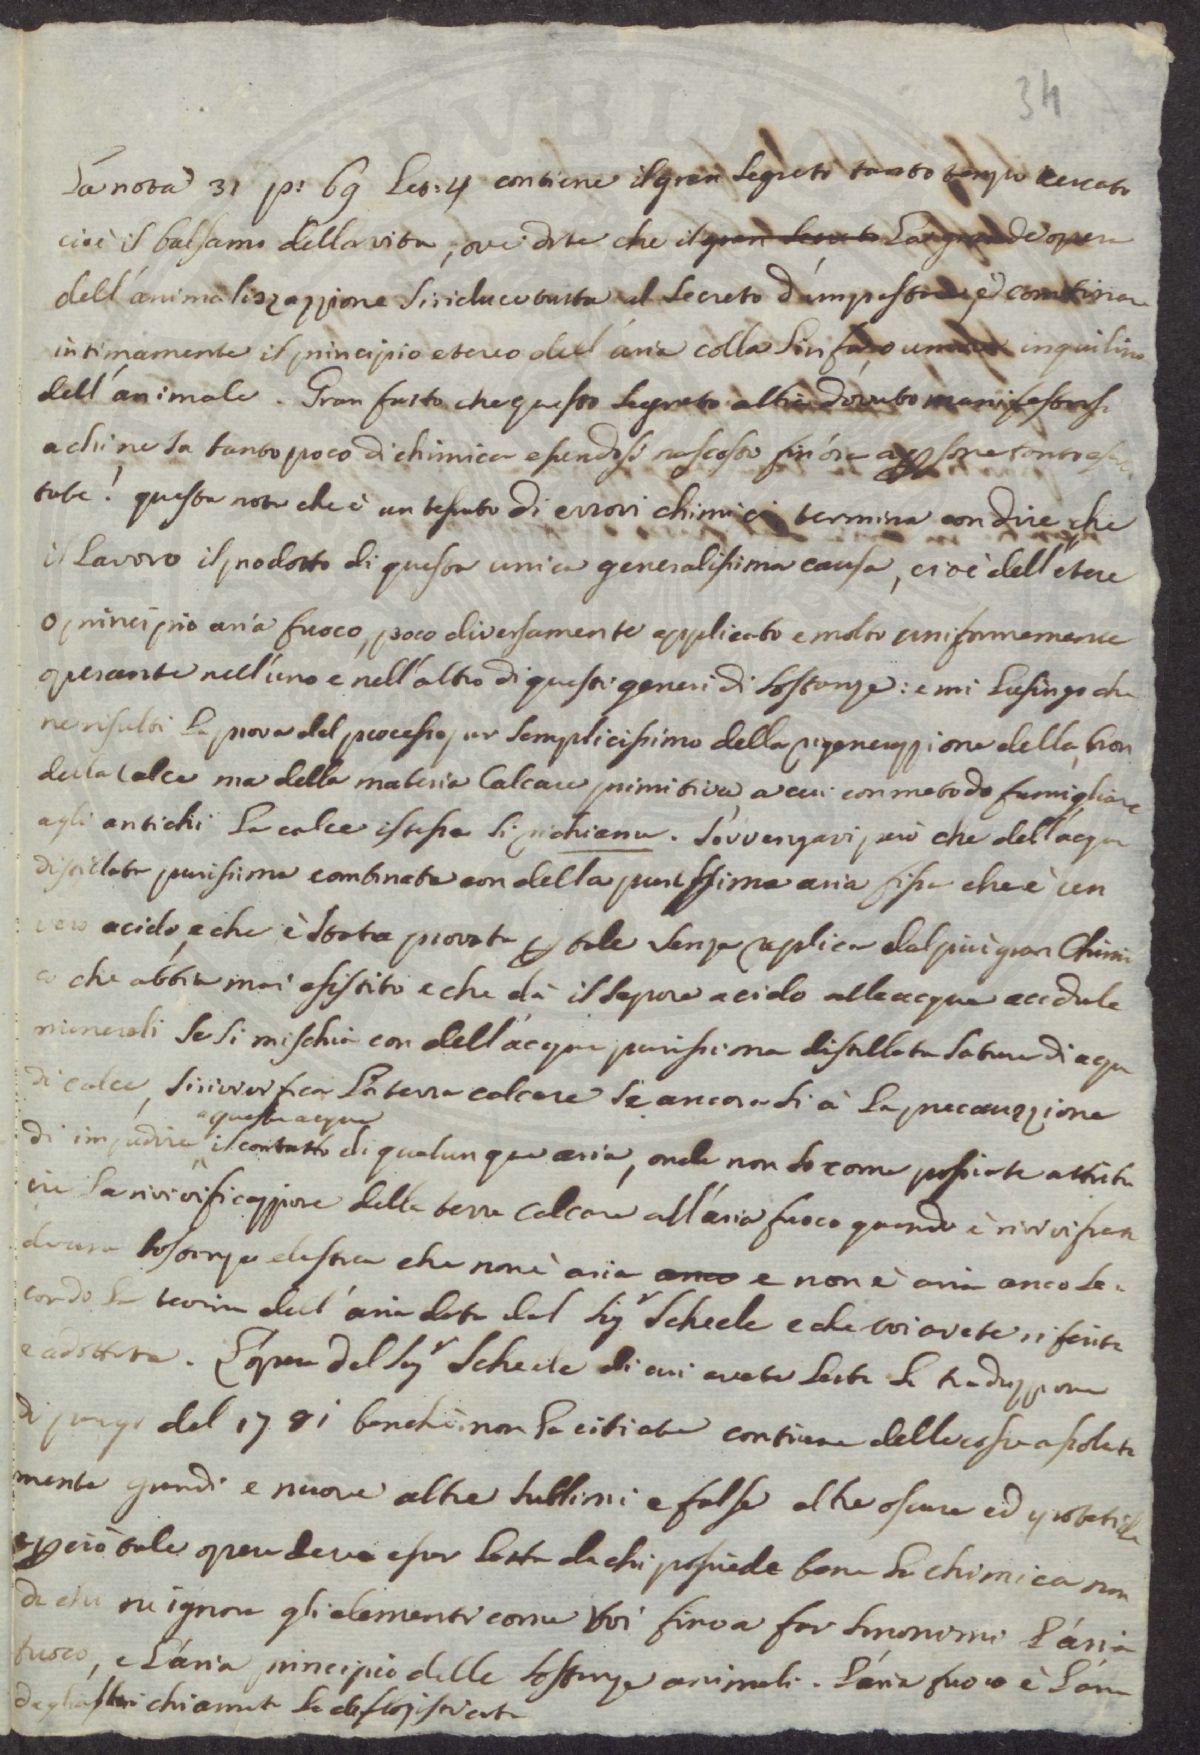 34
La nota 31 p: 69 Let: 4 contiene il gran Segreto tanto tempo cercato
cioè il balsamo della vita, ove dite che il gran Secreto La grande opera
dell'animalizzazzione si riduce tutta al Secreto d'impastare, e combinare
intimamente il principio etereo dell'aria colla Linfa, o umore inquilino
dell'animale. Gran fatto che questo Segreto abbia dovuto manifestarsi
a chi ne sa tanto poco di chimica essendosi nascosto fin'ora a persone tanto
tate! questa nota che è un tessuto di errori chimici termina con dire che
il Lavoro il prodotto di questa unica generalissima causa, cioè dell'etere
o principio aria fuoco, poco diversamente applicato e molto uniformemente
operante nell'uno e nell'altro di questi generi di sostanze: e mi Lusingo che
ne risulti La prova del processo pur semplicissimo della rigenerazzione della, non
della calce ma della materia Calcare primitiva, a cui con metodo famigliare
agli antichi La calce istessa si richiama. Sovvengavi però che dell'acqua
distillata purissima combinata con della purissima aria fissa che è un
vero acido, e che è stata provata per tale senza replica dal più gran Chimi
co che abbia mai esistito e che dà il sapore acido alle acque acidule
minerali se si mischia con dell'acqua purissima distillata satura di aqua
di calce, si rivivifica La terra calcare se ancora si à La precauzzione
a quest'acqua
di impedire il contatto di qualunque aria, onde non so come possiate attribu
ire La rivivificazzione della terra calcare all'aria fuoco quando è rivivificata
da una sostanza elastica che non è aria anco e non è aria anco se=
condo La teoria dell'aria data dal Sigr Scheele e che voi avete riferita
e adottata. L'opera del Sigr Scheele di cui avete Letta La traduzzione
di parigi del 1781 benchè non La citiate contiene delle cose assoluta
mente grandi e nuove altre sublimi e false altre oscure ed ipotetiche
e perciò tale opera deve esser Letta da chi possiede bene La chimica non
da chi ne ignora gli elementi come voi fino a far sinonimi L'aria
fuoco, e L'aria principio delle sostanze animali. L'aria fuoco è L'aria
dagli altri chiamata La deflogisticata